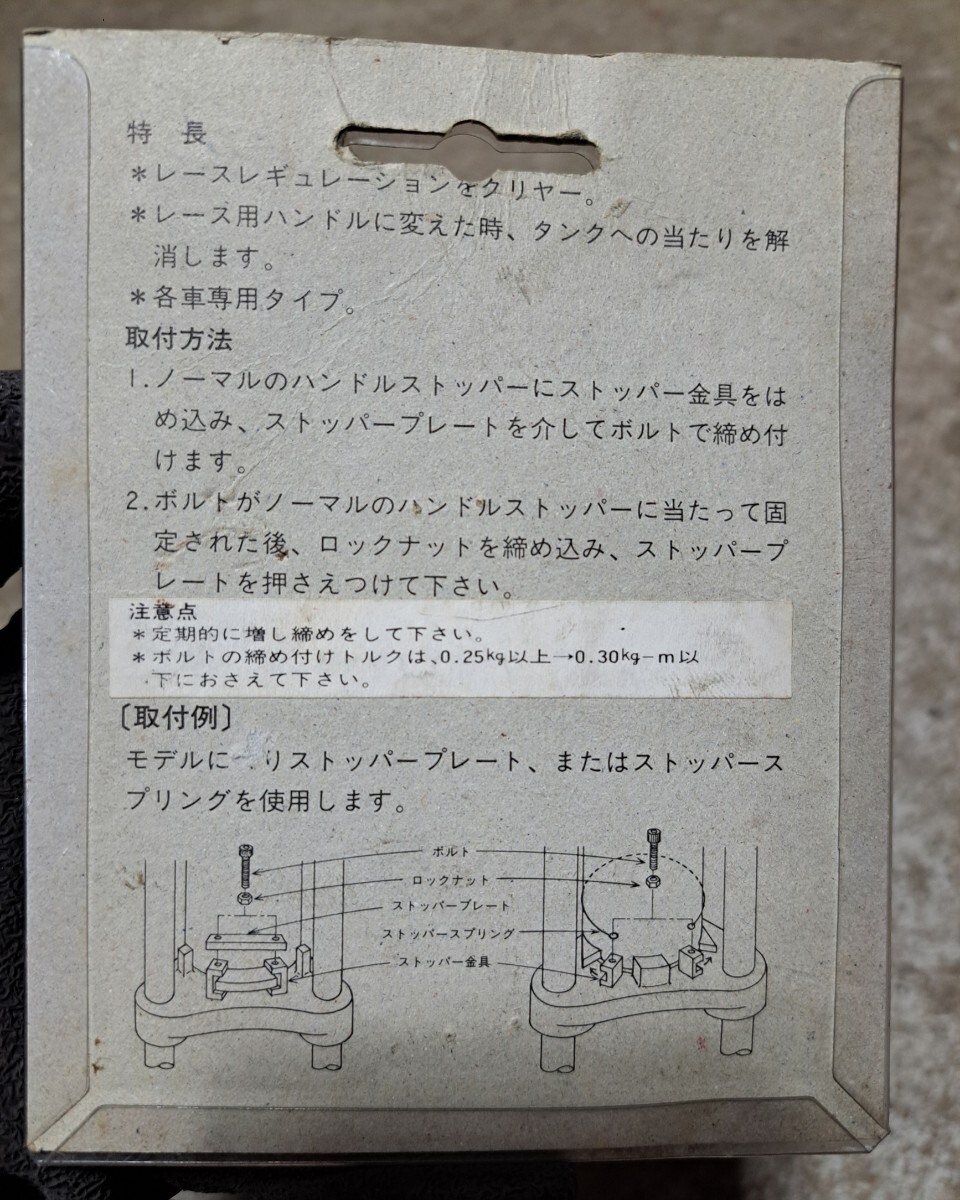 特 長
*レースレギュレーションをクリヤー。
*レース用ハンドルに変えた時、タンクへの当たりを解
消します。
*各車専用タイプ。
取付方法
1.ノーマルのハンドルストッパーにストッパー金具をは
め込み、ストッパープレートを介してボルトで締め付
けます。
2.ボルトがノーマルのハンドルストッパーに当たって固
定された後、ロックナットを締め込み、ストッパープ
レートを押さえつけて下さい。
注意点
*定期的に増し締めをして下さい。
*ボルトの締め付けトルクは、0.25kg以上→0.30kg-m以
下におさえて下さい。
〔取付例〕
モデルに りストッパープレート、またはストッパース
プリングを使用します。
ボルト
ロックナット
ストッパープレート
ストッパースプリング
ストッパー金具